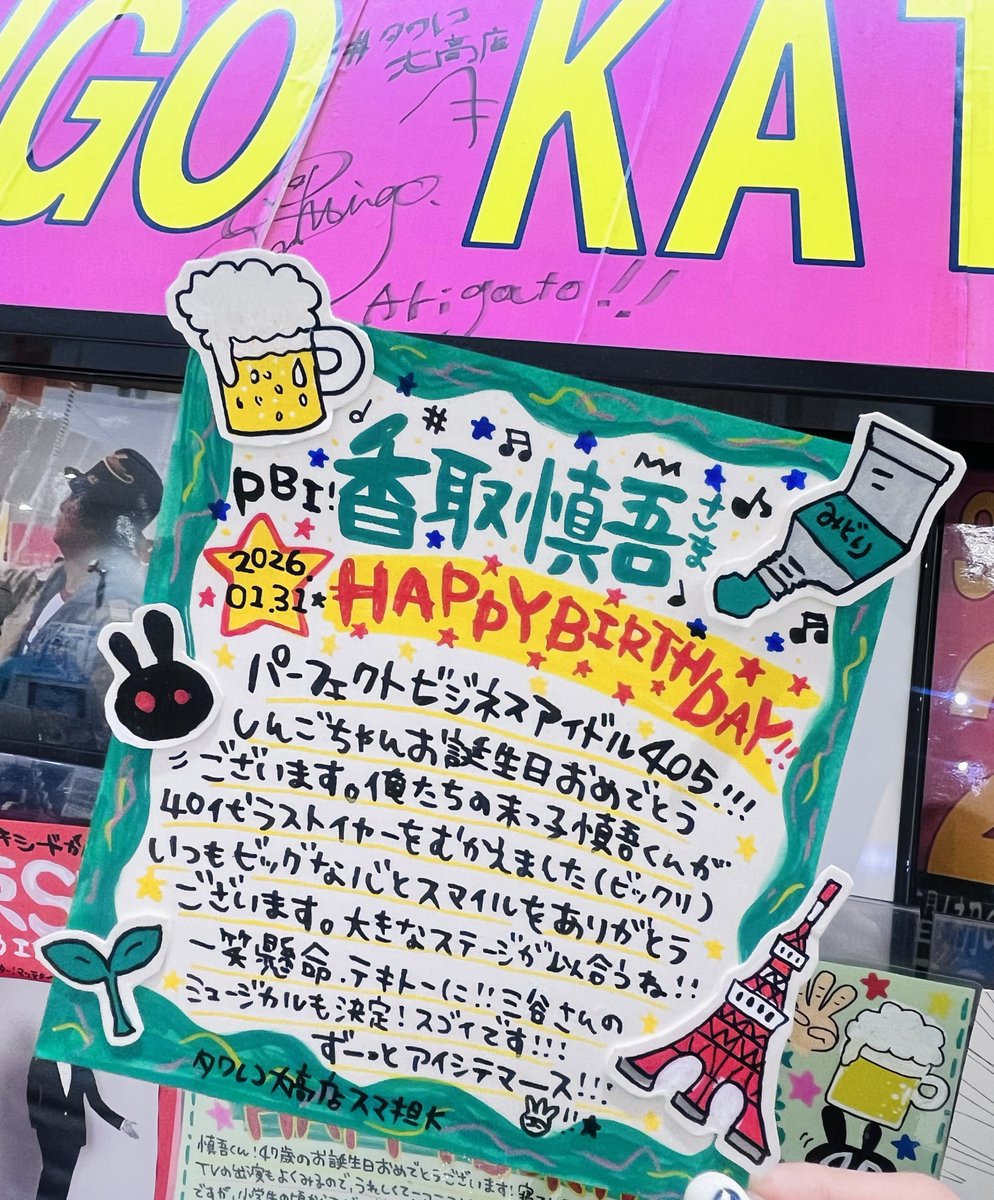 GO KAT
#タワレコ
大高店
Shingo.
Arigato!!
PBI!香取慎吾さま
みどり
2026.
01.31
HAPPY BIRTHDAY!!
パーフェクトビジネスアイドル405!!!
しんごちゃんお誕生日おめでとう
ございます。俺たちの末っ子慎吾くんが
40イゼラストイヤーをむかえました(ビックリ)
いつもビッグな心とスマイルをありがとう
ございます。大きなステージが似合うね!!
一笑懸命、テキトーに!!三谷さんの
ミュージカルも決定!スゴイです!!!
ずーっとアイシテマース!!!
タワレコ大高店スマ担K
慎吾くん!47歳のお誕生日おめでとうございます!
TVの出演もよくみるので、うれしくて
ですが、小学生の頃から